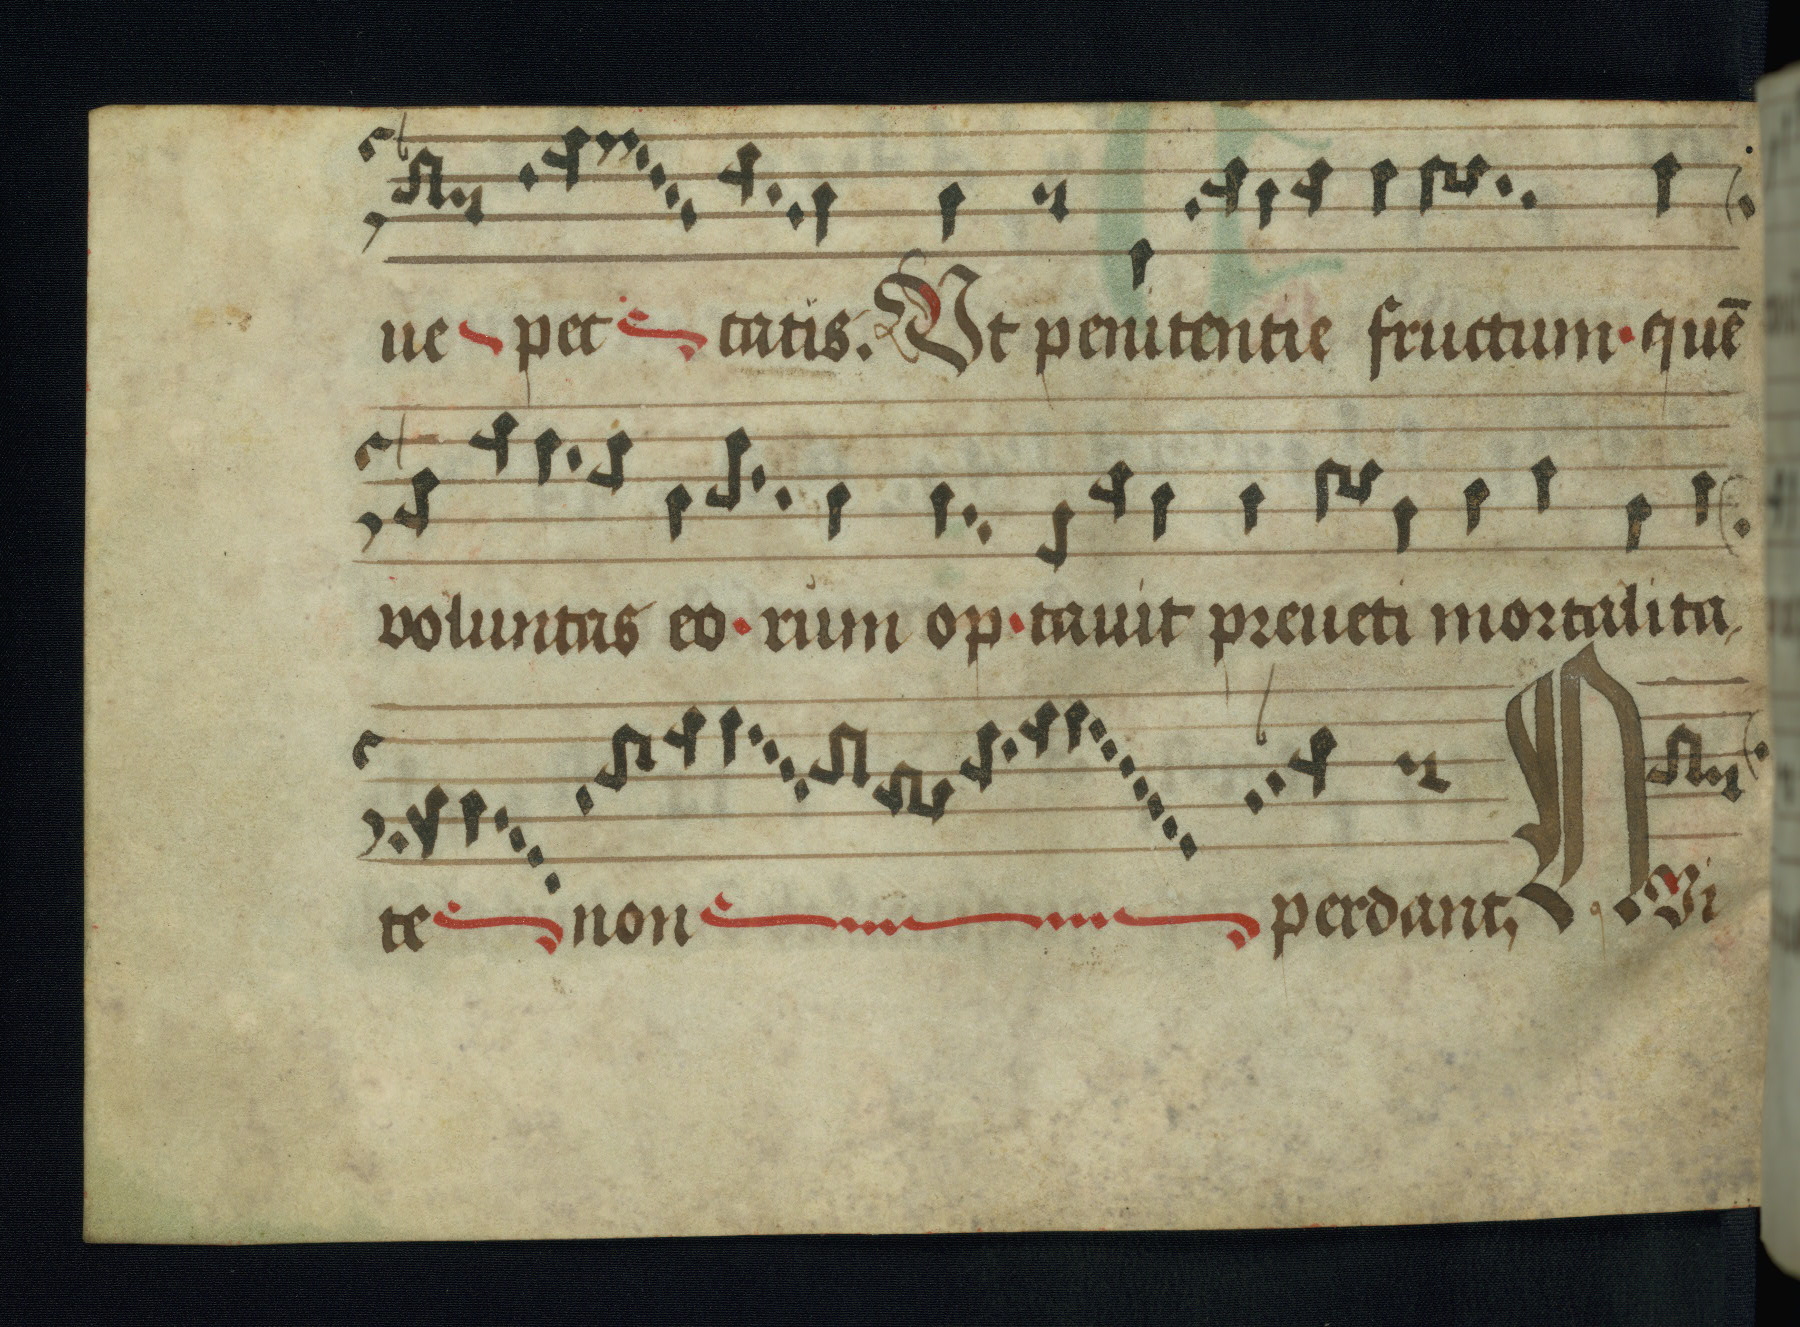 ue pec catis. Ut penitentie fructum quē
voluntas eo rum op tauit preueti mortalita
te non perdant, Ni